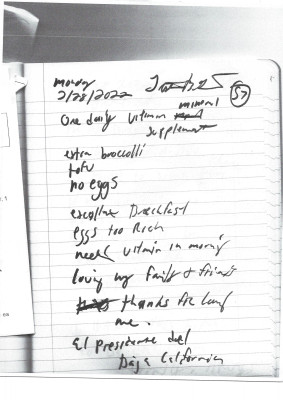 monday
2/28/2022
57
mineral
One daily vitamin
supplement
extra broccolli
tofu
no eggs
excellent Breakfast
eggs too Rich
need vitamin in morning
loving my family & friends
thanks for loving
me.
El presidente del
Baja California